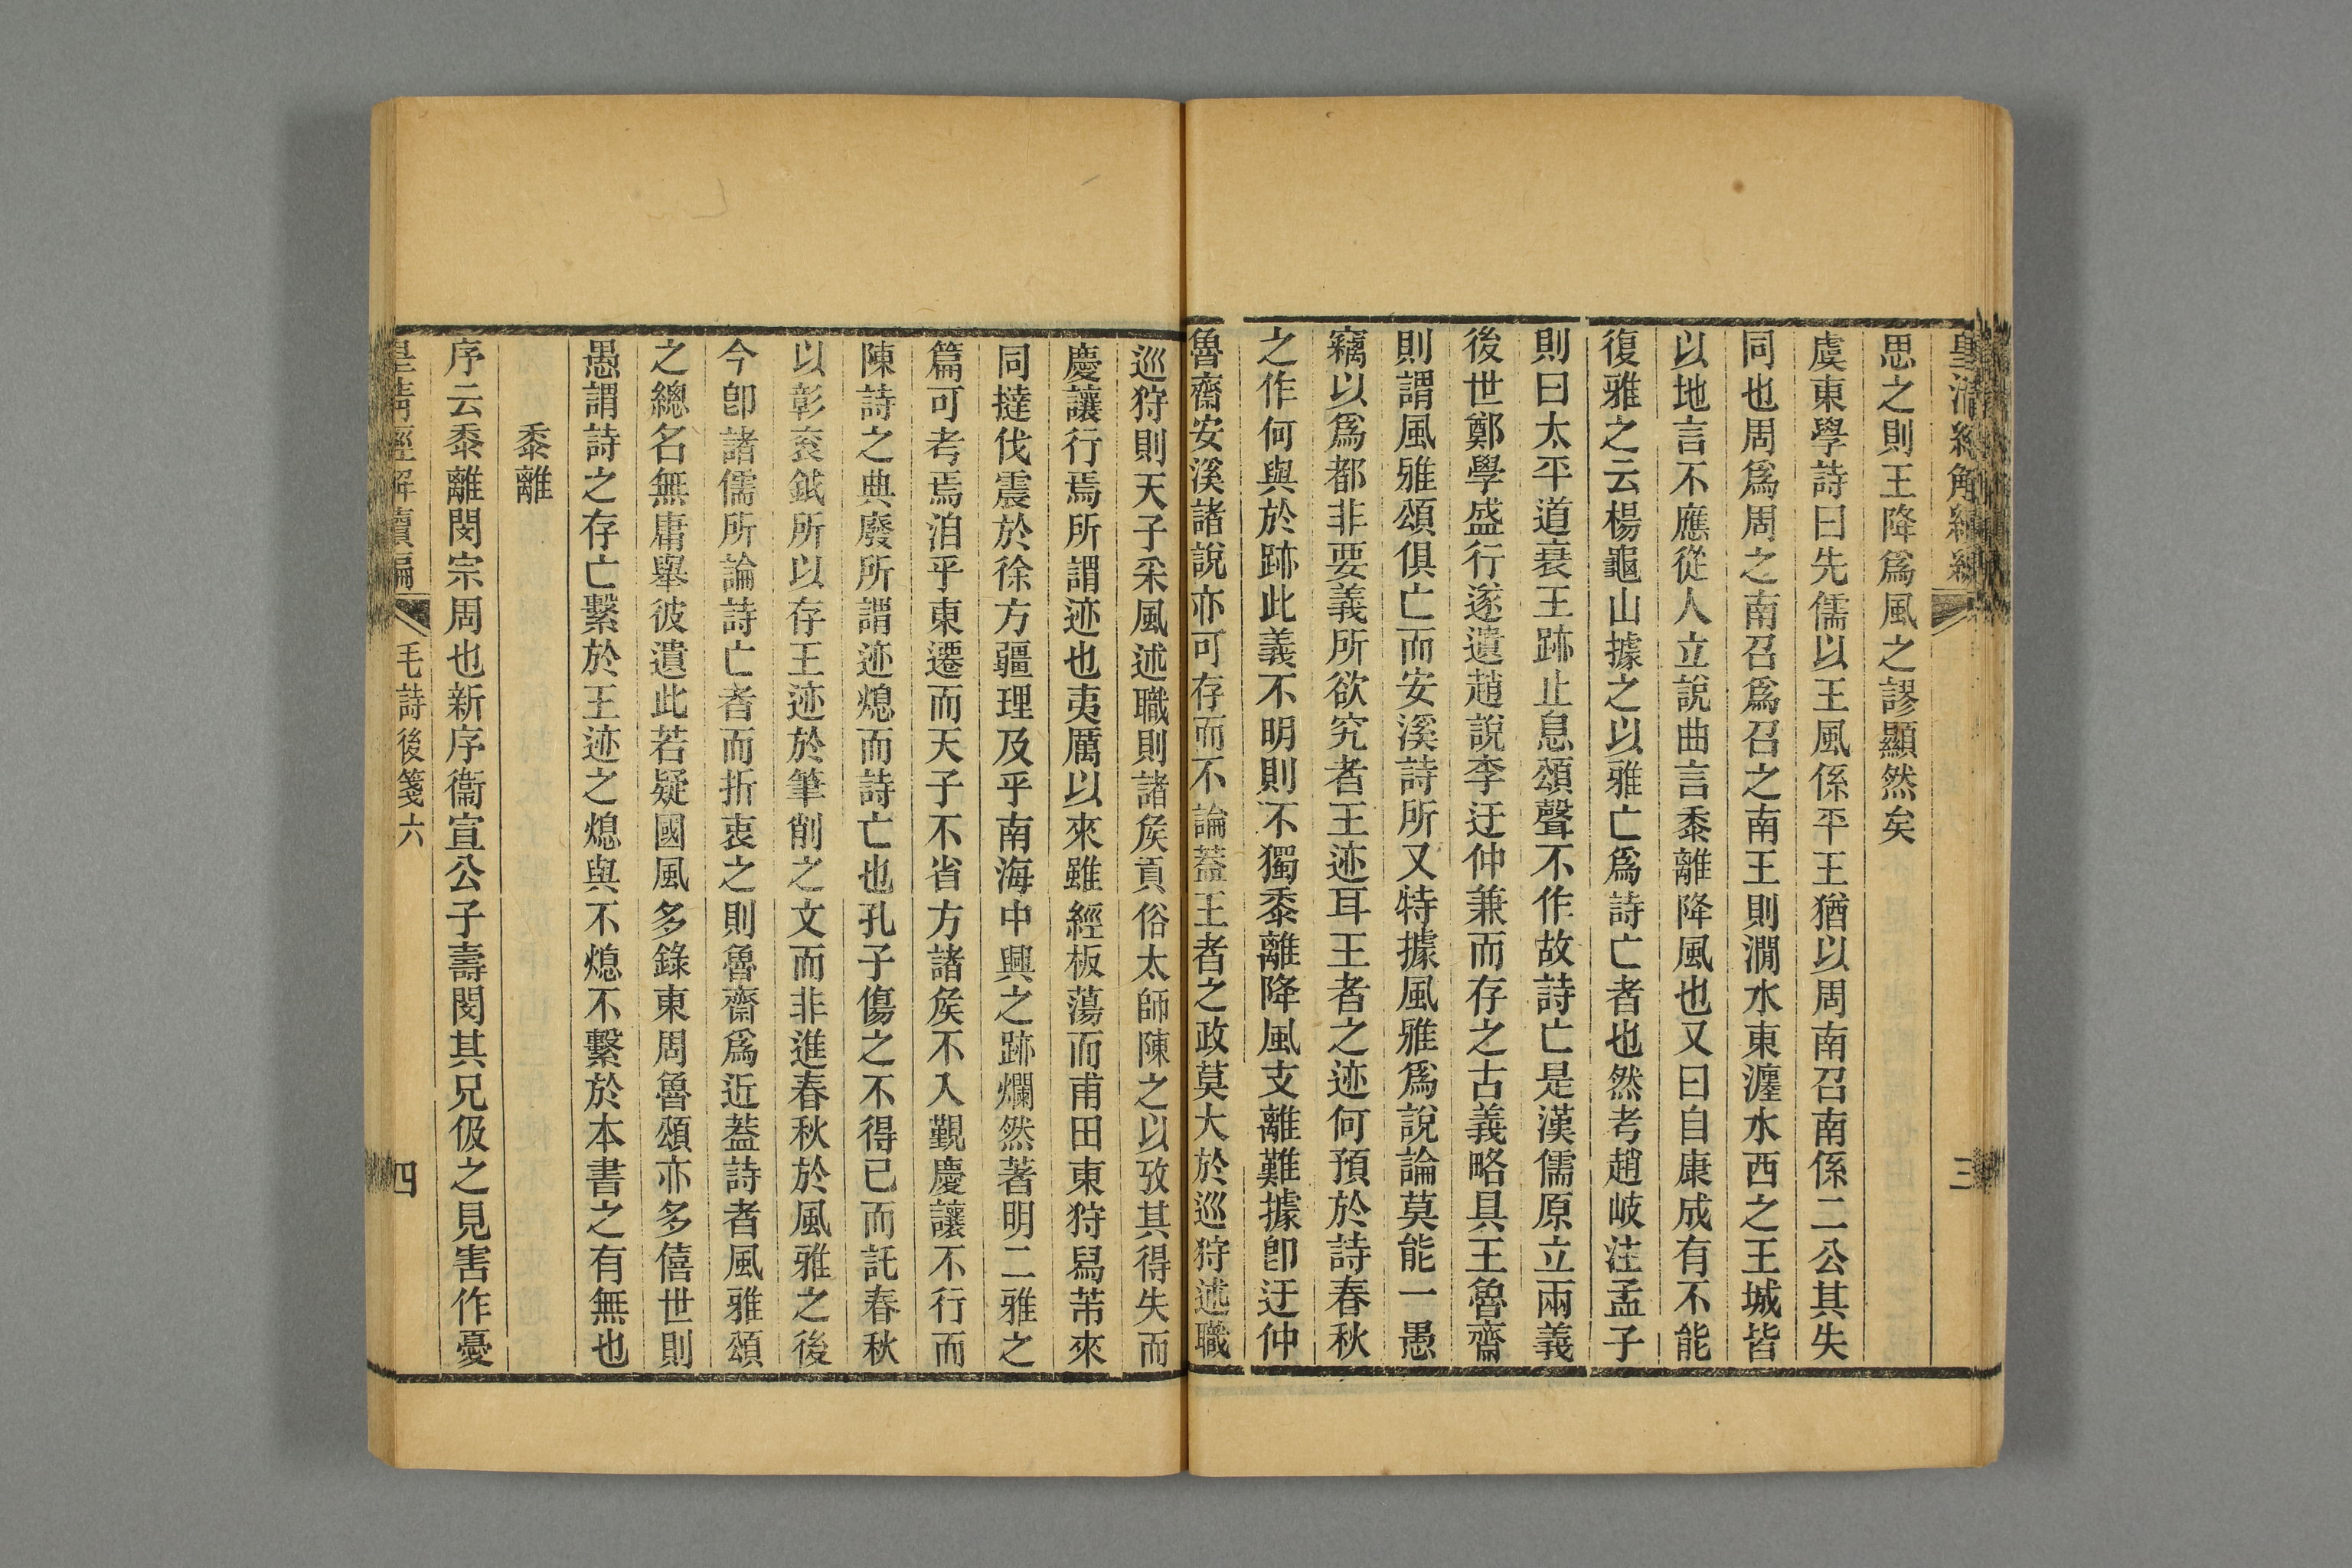 思之則王降爲風之謬顯然矣
虞東學詩曰先儒以王風係平王猶以周南召南係二公其失
同也周爲周之南召爲召之南王則澗水東瀍水西之王城皆
以地言不應從人立說曲言黍離降風也又曰自康成有不能
復雅之云楊龜山據之以雅亡爲詩亡者也然考趙岐注孟子
則曰太平道衰王跡止息頌聲不作故詩亡是漢儒原立兩義
後世鄭學盛行遂遺趙說李迂仲兼而存之古義略具王魯齋
則謂風雅頌俱亡而安溪詩所又特據風雅爲說論莫能一愚
竊以爲都非要義所欲究者王迹耳王者之迹何預於詩春秋
之作何與於跡此義不明則不獨黍離降風支離難據卽迂仲
魯齋安溪諸說亦可存而不論蓋王者之政莫大於巡狩述職
巡狩則天子采風述職則諸矦貢俗太師陳之以攷其得失而
慶讓行焉所謂迹也夷厲以來雖經板蕩而甫田東狩舄芾來
同撻伐震於徐方疆理及乎南海中興之跡爛然著明二雅之
篇可考焉洎乎東遷而天子不省方諸矦不入覲慶讓不行而
陳詩之典廢所謂迹熄而詩亡也孔子傷之不得已而託春秋
以彰衮鉞所以存王迹於筆削之文而非進春秋於風雅之後
今卽諸儒所論詩亡者而折衷之則魯齋爲近葢詩者風雅頌
之總名無庸舉彼遺此若疑國風多錄東周魯頌亦多僖世則
愚謂詩之存亡繫於王迹之熄與不熄不繫於本書之有無也
黍離
序云黍離閔宗周也新序衞宣公子壽閔其兄伋之見害作憂
皇清經解續編
毛詩後箋六
四